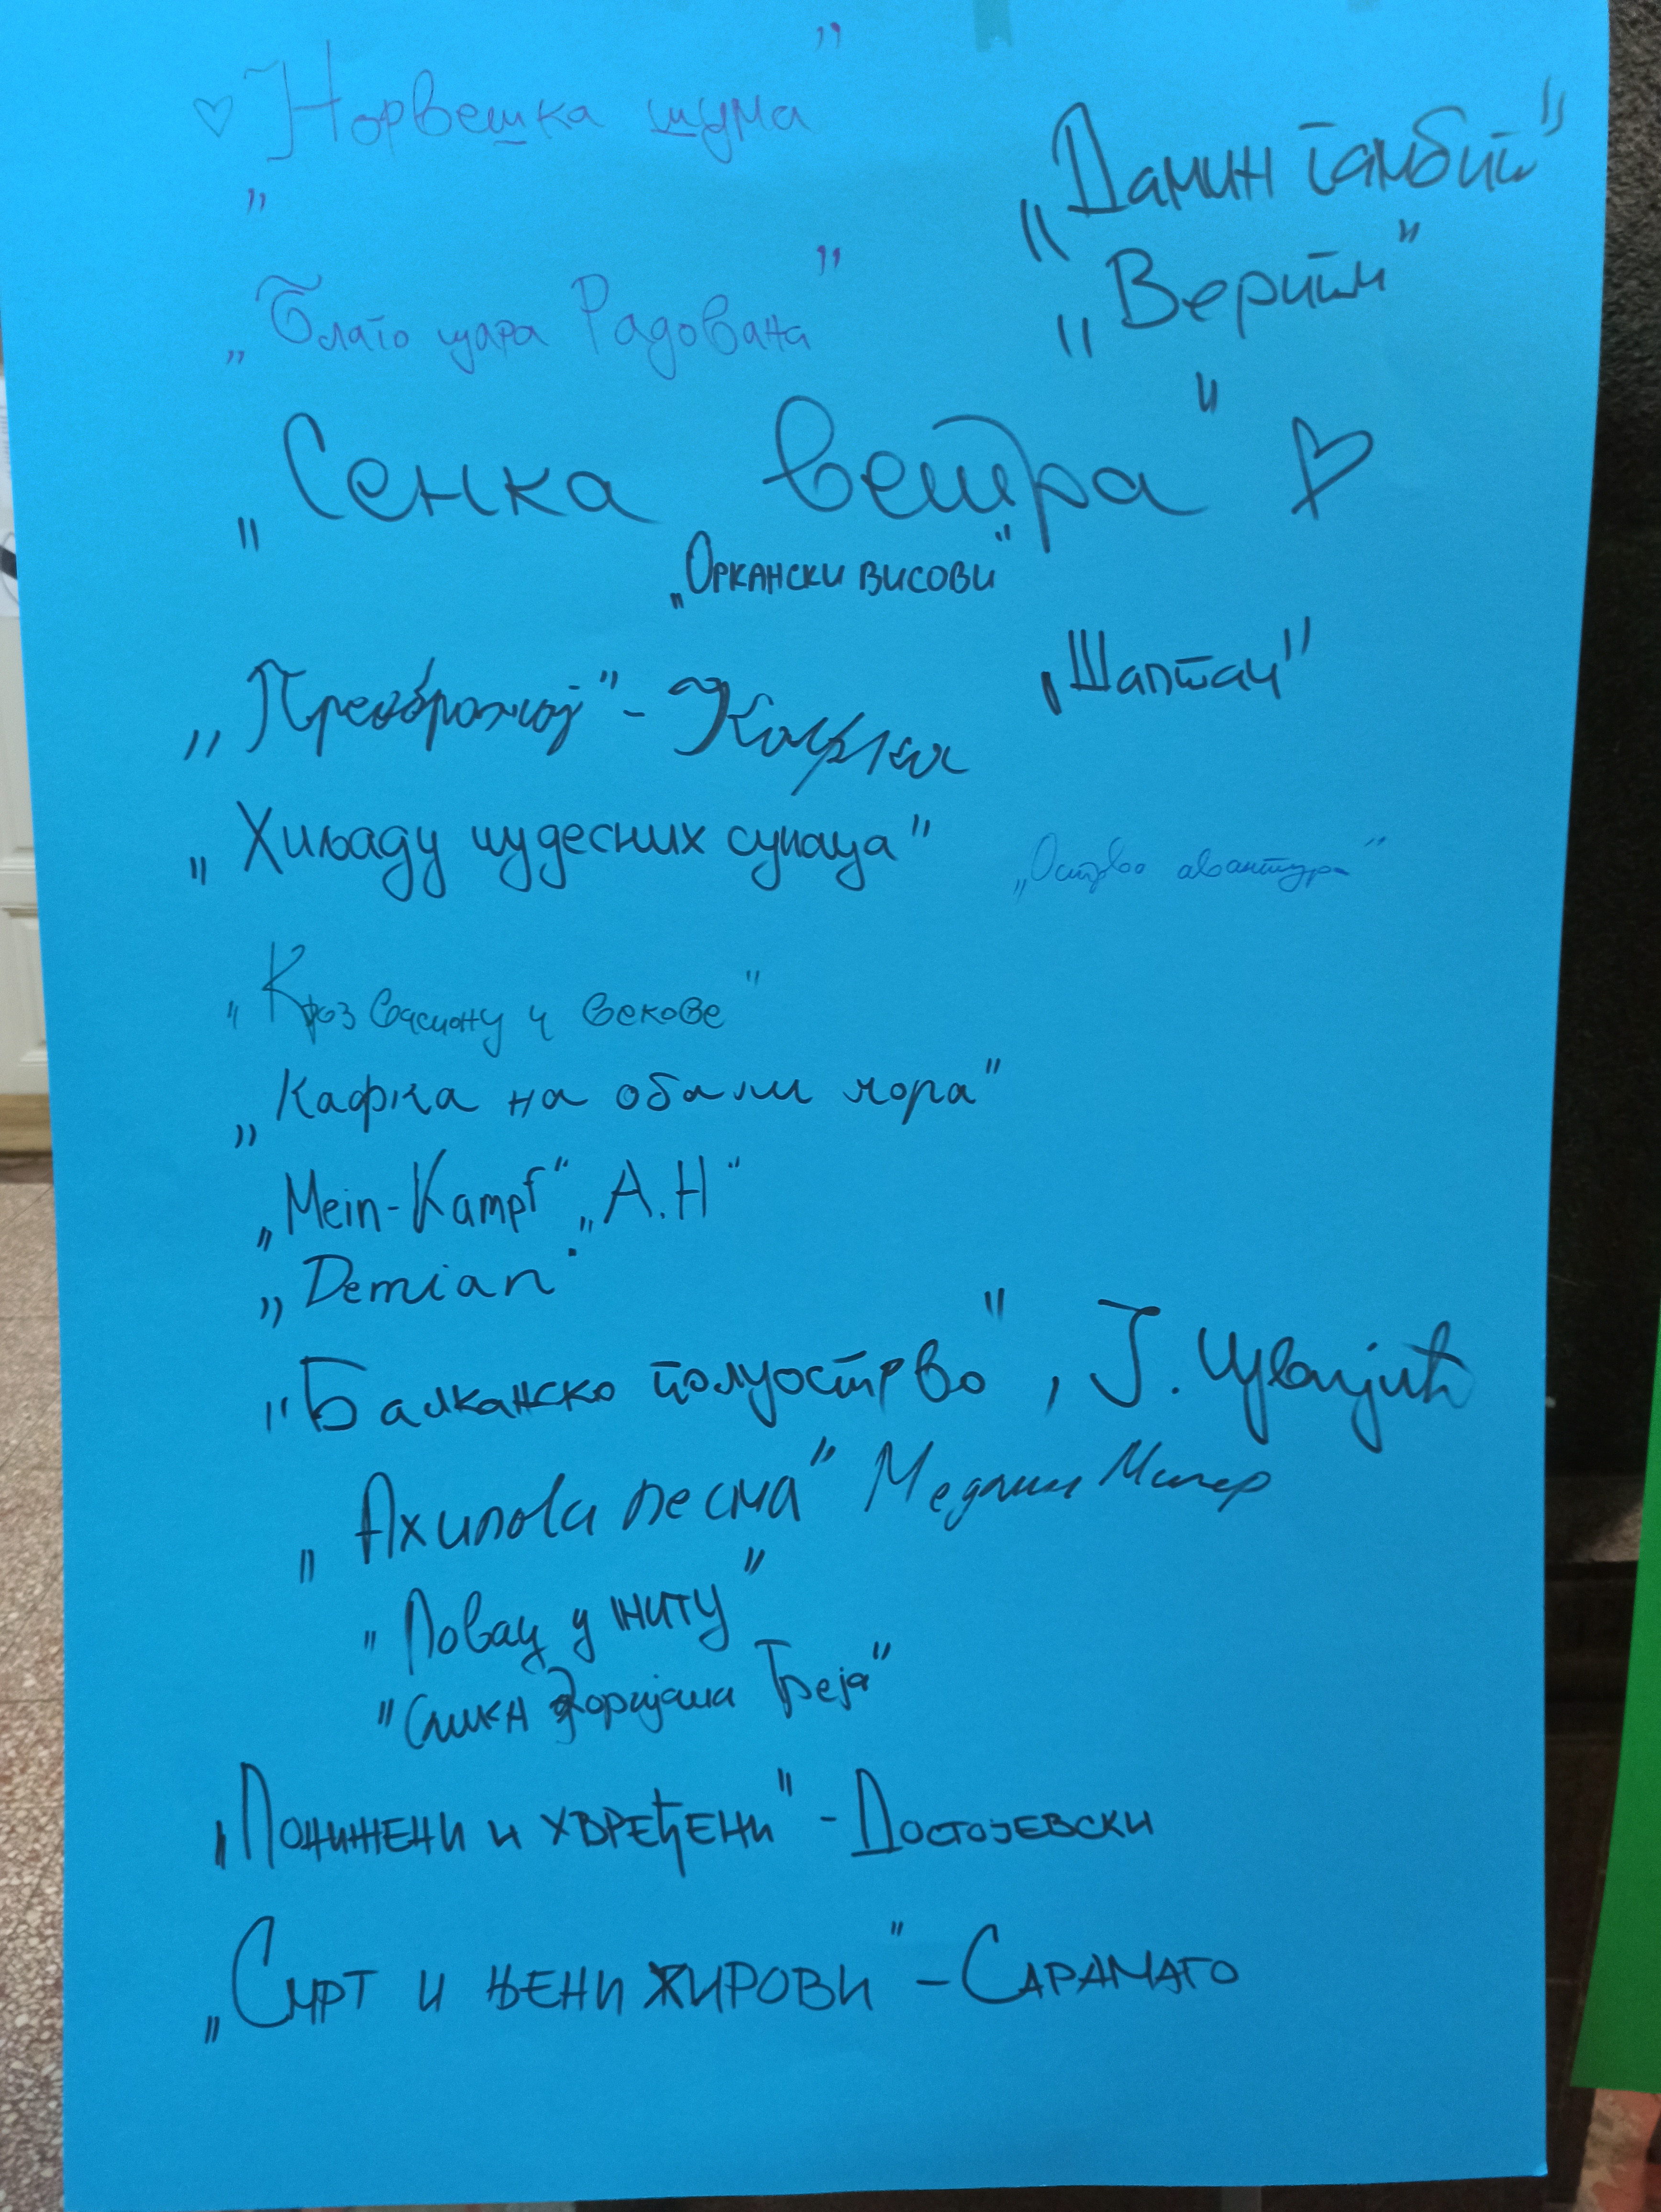 „Норвешка шума”
„Дамин гамбит”
„Веритм”
„Благо цара Радована”
„Сенка ветра”
„Оркански висови”
„Преображај” - Кафка
„Шаптач”
„Хиљаду чудесних сунаца”
„Острво авантура”
„Кроз васиону и векове”
„Кафка на обали мора”
„Mein-Kampf” „A.H”
„Demian”
„Балканско полуострво”, Ј. Цвијић
„Ахилова песма” Медлин Милер
„Ловац у житу”
„Слика Доријана Греја”
„Понижени и увређени” - Достојевски
„Смрт и њени хирови” - Сарамаго